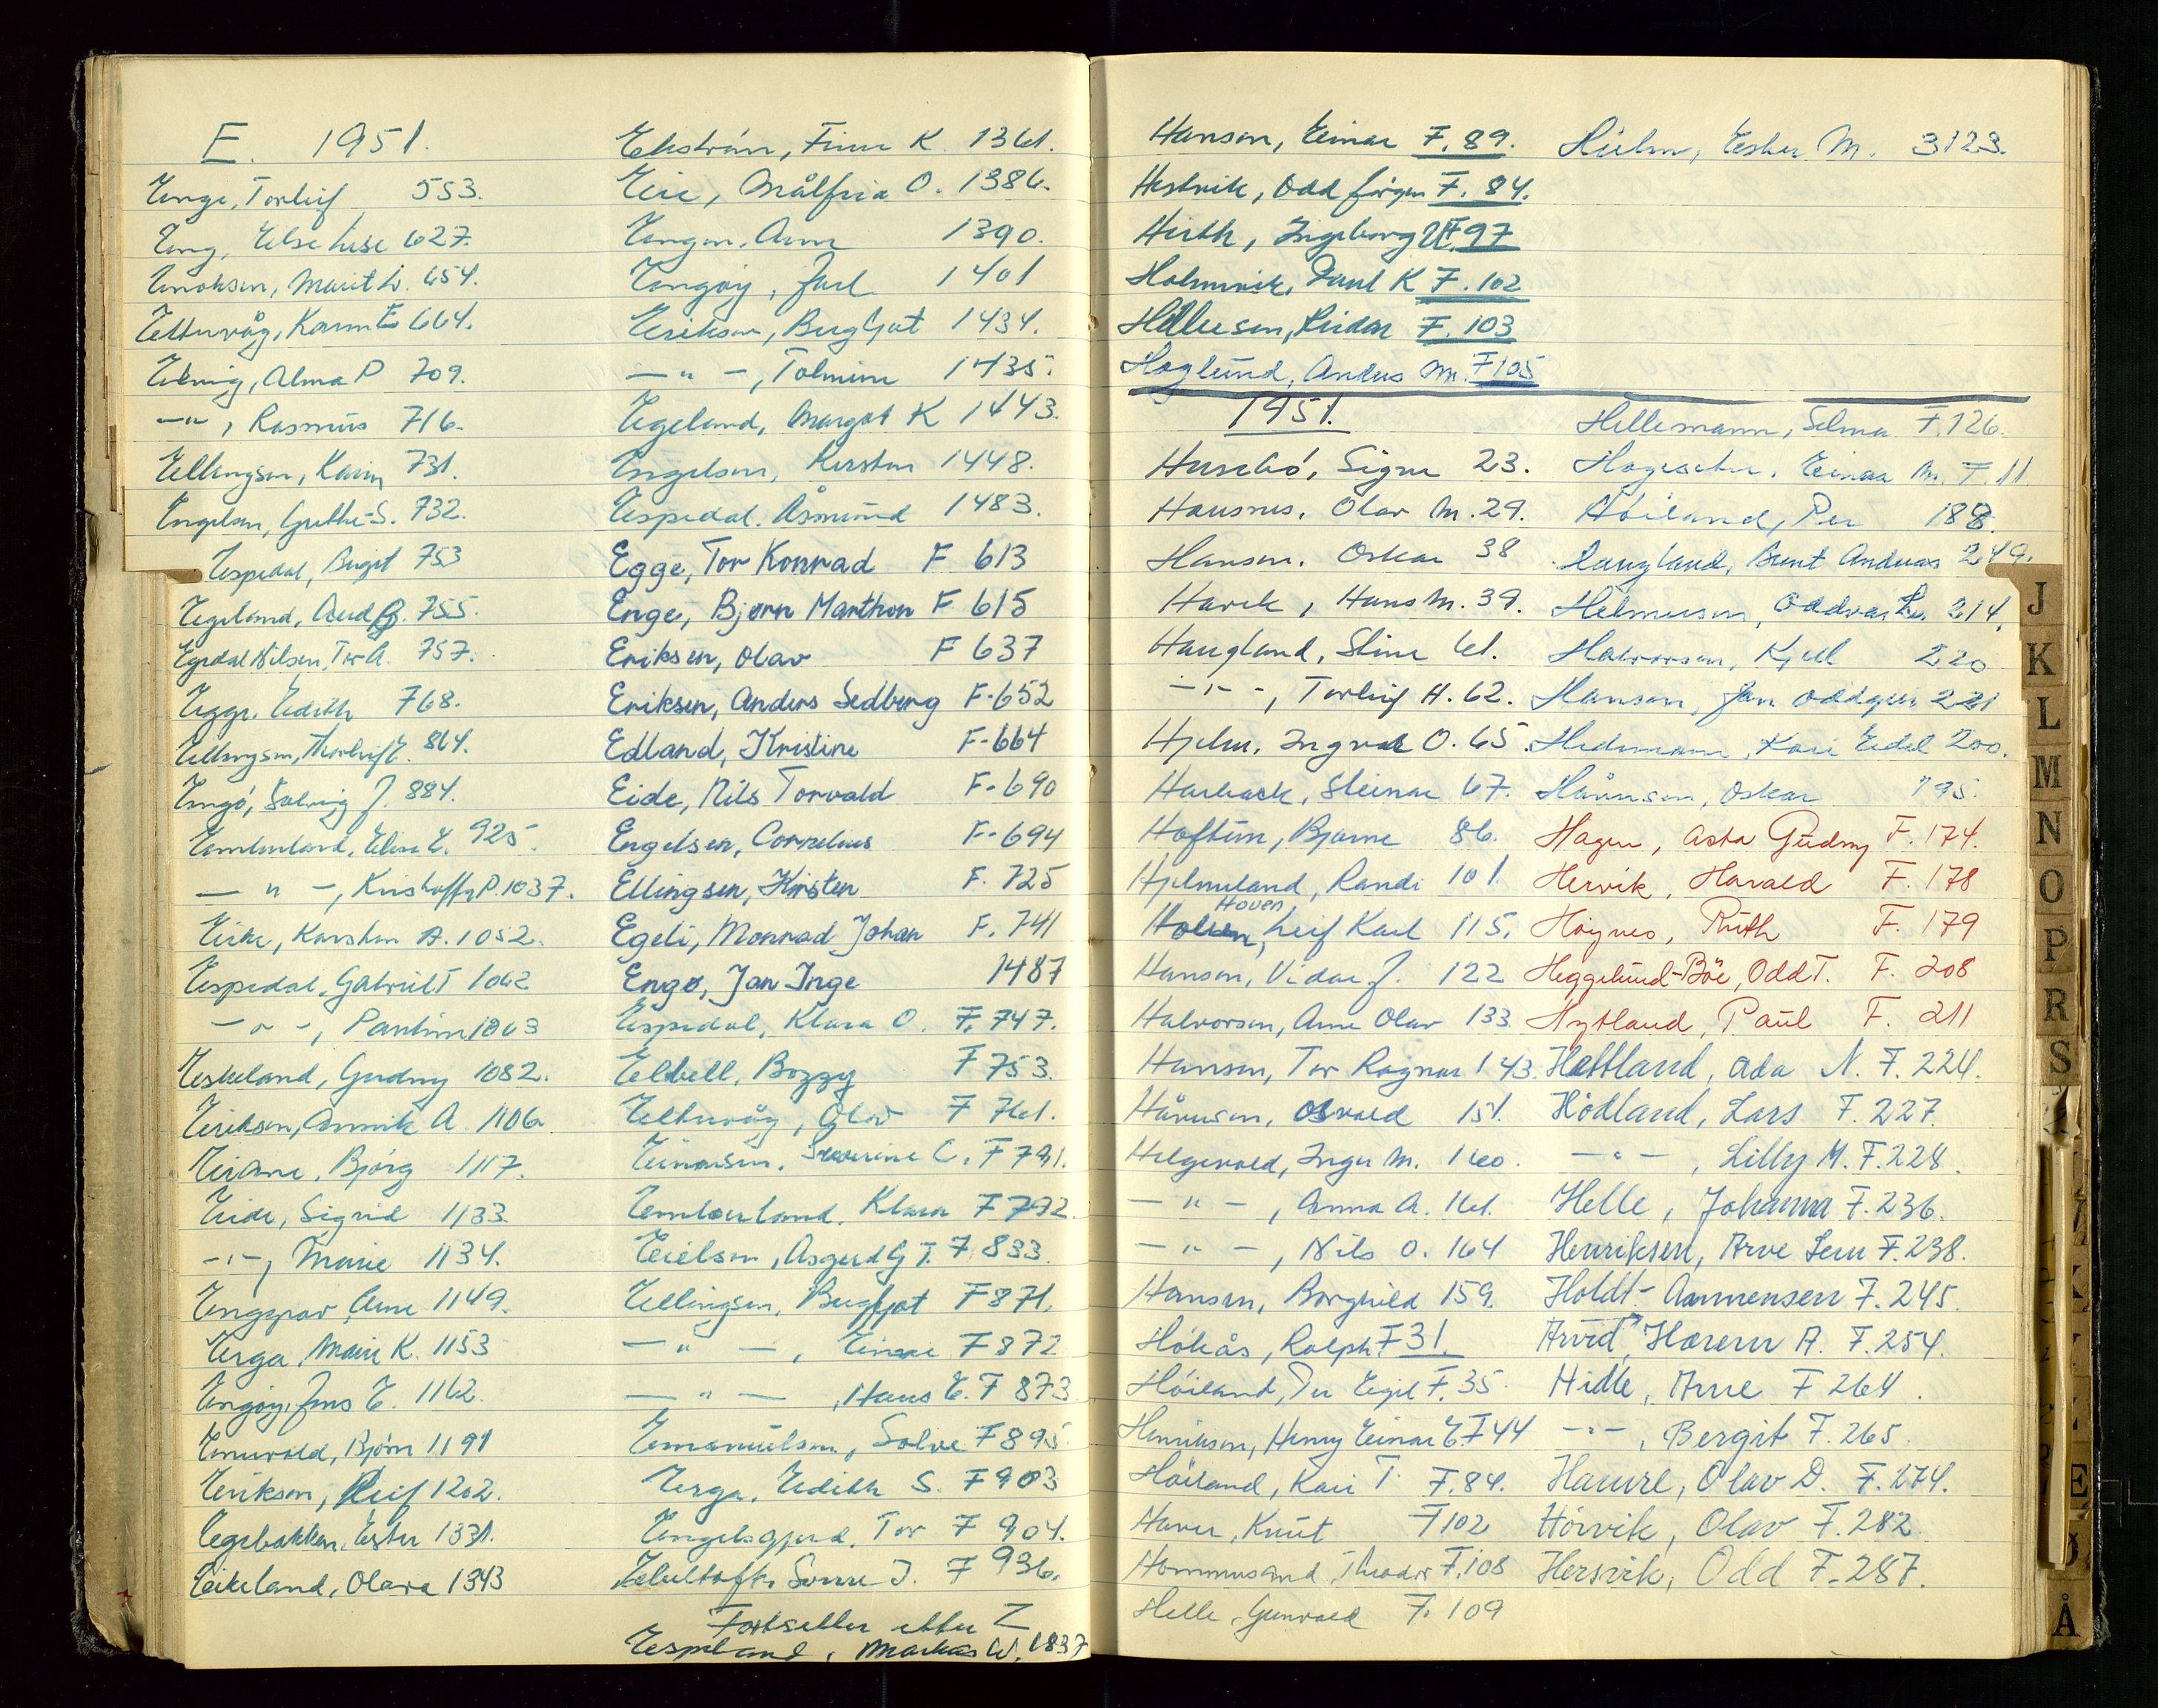 E. 1951.
Enge, Torleif 553.
Eng, Else Lise 627.
Enoksen, Marit L. 654.
Eltervåg, Karin E 664.
Elvig, Alma P 709.
—"—, Rasmus 716.
Ellingsen, Karin 731.
Engelsen, Grethe S. 732.
Espedal, Birgit 753
Egeland, Aud G. 755.
Egedal Nilsen, Tor A. 757.
Egge, Edith 768.
Ellingsen, Thorleif E. 864.
Engø, Solveig J. 884.
Emberland, Elise E. 925.
— " —, Kristoffer P. 1037.
Eike, Karsten A. 1052.
Espedal, Gabriel T 1062
— " —, Pauline 1063
Eskeland, Gudny 1082.
Eriksen, Annik A. 1106
Eirane, Bjørg 1117.
Eide, Sigrid 1133.
—"—, Marie 1134.
Enggrav, Arne 1149.
Erga, Marie K. 1153
Engøy, Jens E. 1162.
Enevald, Bjørn 1191
Eriksen, Leif 1202.
Egebakken, Ester 1331.
Eikeland, Olava 1343
Ekström, Finn K. 1361.
Eie, Målfrid O. 1386.
Engen, Arne 1390.
Engøy, Jarl 1401
Eriksen, Bergljot 1434.
— " —, Tolmine 1435.
Egeland, Margot K 1443.
Engelsen, Kirsten 1448.
Espedal, Åsmund 1483.
Egge, Tor Konrad F 613
Enge, Bjørn Marthon F. 615
Eriksen, Olav F 637
Eriksen, Anders Sedberg F-652
Edland, Kristine F-664
Eide, Nils Torvald F-690
Engelsen, Cornelius F-694
Ellingsen, Kirsten F. 725
Egeli, Monrad Johan F. 741
Engø, Jan Inge 1487
Espedal, Klara O. F. 747.
Elbell, Bozzy F 753.
Eltervåg, Olav F 761.
Einarsen, Severine C. F 791.
Emberland, Klara F 792.
Eielsen, Asgerd G T. F 833.
Ellingsen, Bergljot F 871.
— " —, Einar F 872
— " —, Hans E. F 873
Emanuelsen, Solve F 895
Erga, Edith S. F 903
Engelsgjerd, Tor F 904.
Sonne J. F 936.
Fortsetter etter Z
Espeland, Markus W. 1837
Hansen, Einar F. 89.
Hestvik, Odd Jørgen F. 84.
Hirth, Ingeborg F. 97
Holmevik, Paul K F. 102
Hilleesen, Reidar F. 103
Høglund, Anders M. F 105
Hülm, Ester M. 3123.
1951.
Husebø, Signe 23.
Hausnes, Olav M. 29.
Hansen, Oskar 38
Hauck, Hans M. 39.
Haugland, Stine 61.
—"—, Torleif H. 62.
Hjelm, Ingvald O. 65.
Harback, Steinar 67.
Hoftun, Bjarne 86.
Hjelmeland, Randi 101.
Hoven
Holsen, Leif Karl 115.
Hansen, Vidar J. 122
Halvorsen, Arne Olav 133
Hansen, Tor Ragnar 143.
Håvarsen, Osvald 151.
Helgevold, Inger M. 160.
— " —, Anna A. 161.
— " —, Nils O. 164
Hansen, Borghild 159.
Hökås, Ralph F 31.
Höiland, Per Egil F. 35.
Henriksen, Henry Einar E. F 44
Höiland, Kari T. F. 84.
Haver, Knut F 102
Hommersand, Theodor F. 108
Helle, Gunvald F. 109
Hellemann, Selma F. 126.
Hageseter, Einar M. F. 11.
Höiland, Per 188.
Haugland, Bernt Andreas 249.
Helmersen, Oddvar L. 214.
Halvorsen, Kjell 220
Hansen, Jan Oddgeir 221
Hedemann, Kari Eidel 200.
Håvarsen, Oskar 195.
Hagen, Asta Gudny F. 174.
Hervik, Harald F. 178
Høynes, Ruth F. 179
Heggelund-Böe, Odd T. F. 208
Hytland, Paul F. 211
Hettland, Ada N. F. 224.
Hödland, Lars F. 227.
—"—, Lilly M. F. 228.
Helle, Johanna F. 236.
Henriksen, Arve Lem F. 238.
Holdt-Ammensen F. 245.
Arvid, Hærem A. F. 254.
Hidle, Arne F 264.
—"—, Bergit F. 265.
Hauvre, Olav D. F. 274.
Hörvik, Olav F. 282
Hersvik, Odd F. 287.
J
K
L
M
N
O
P
R
S
E
Å